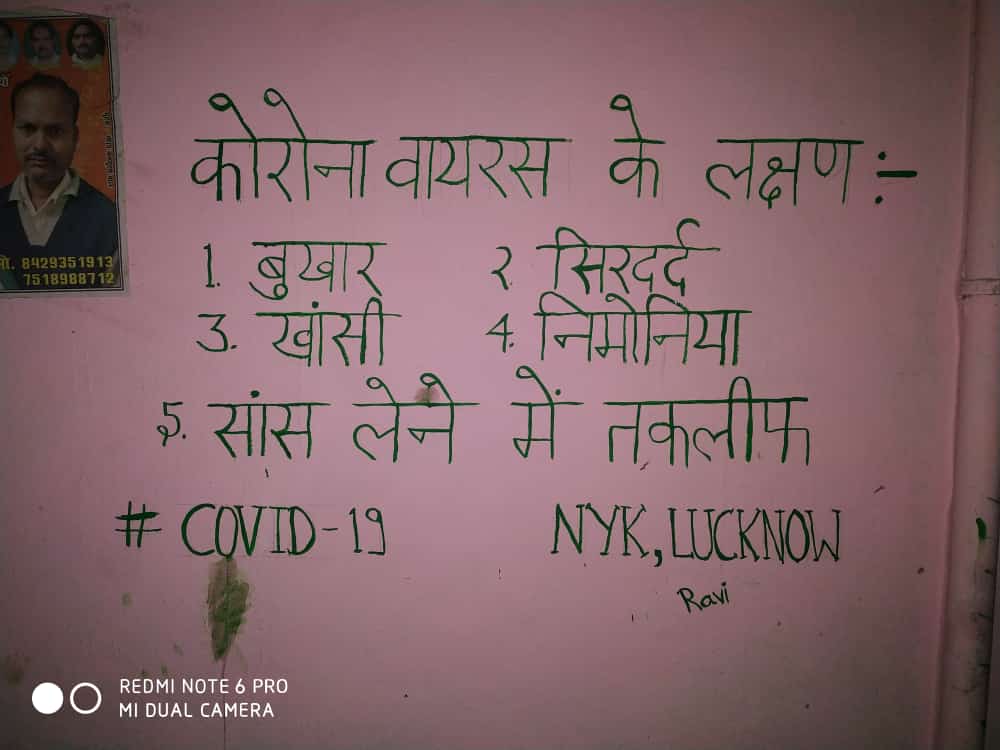 कोरोना वायरस के लक्षण :-
1. बुखार 2. सिरदर्द
3. खांसी 4. निमोनिया
5. सांस लेने में तकलीफ
# COVID-19 NYK, LUCKNOW
Ravi
मो. 8429351913
7518988712
REDMI NOTE 6 PRO
MI DUAL CAMERA